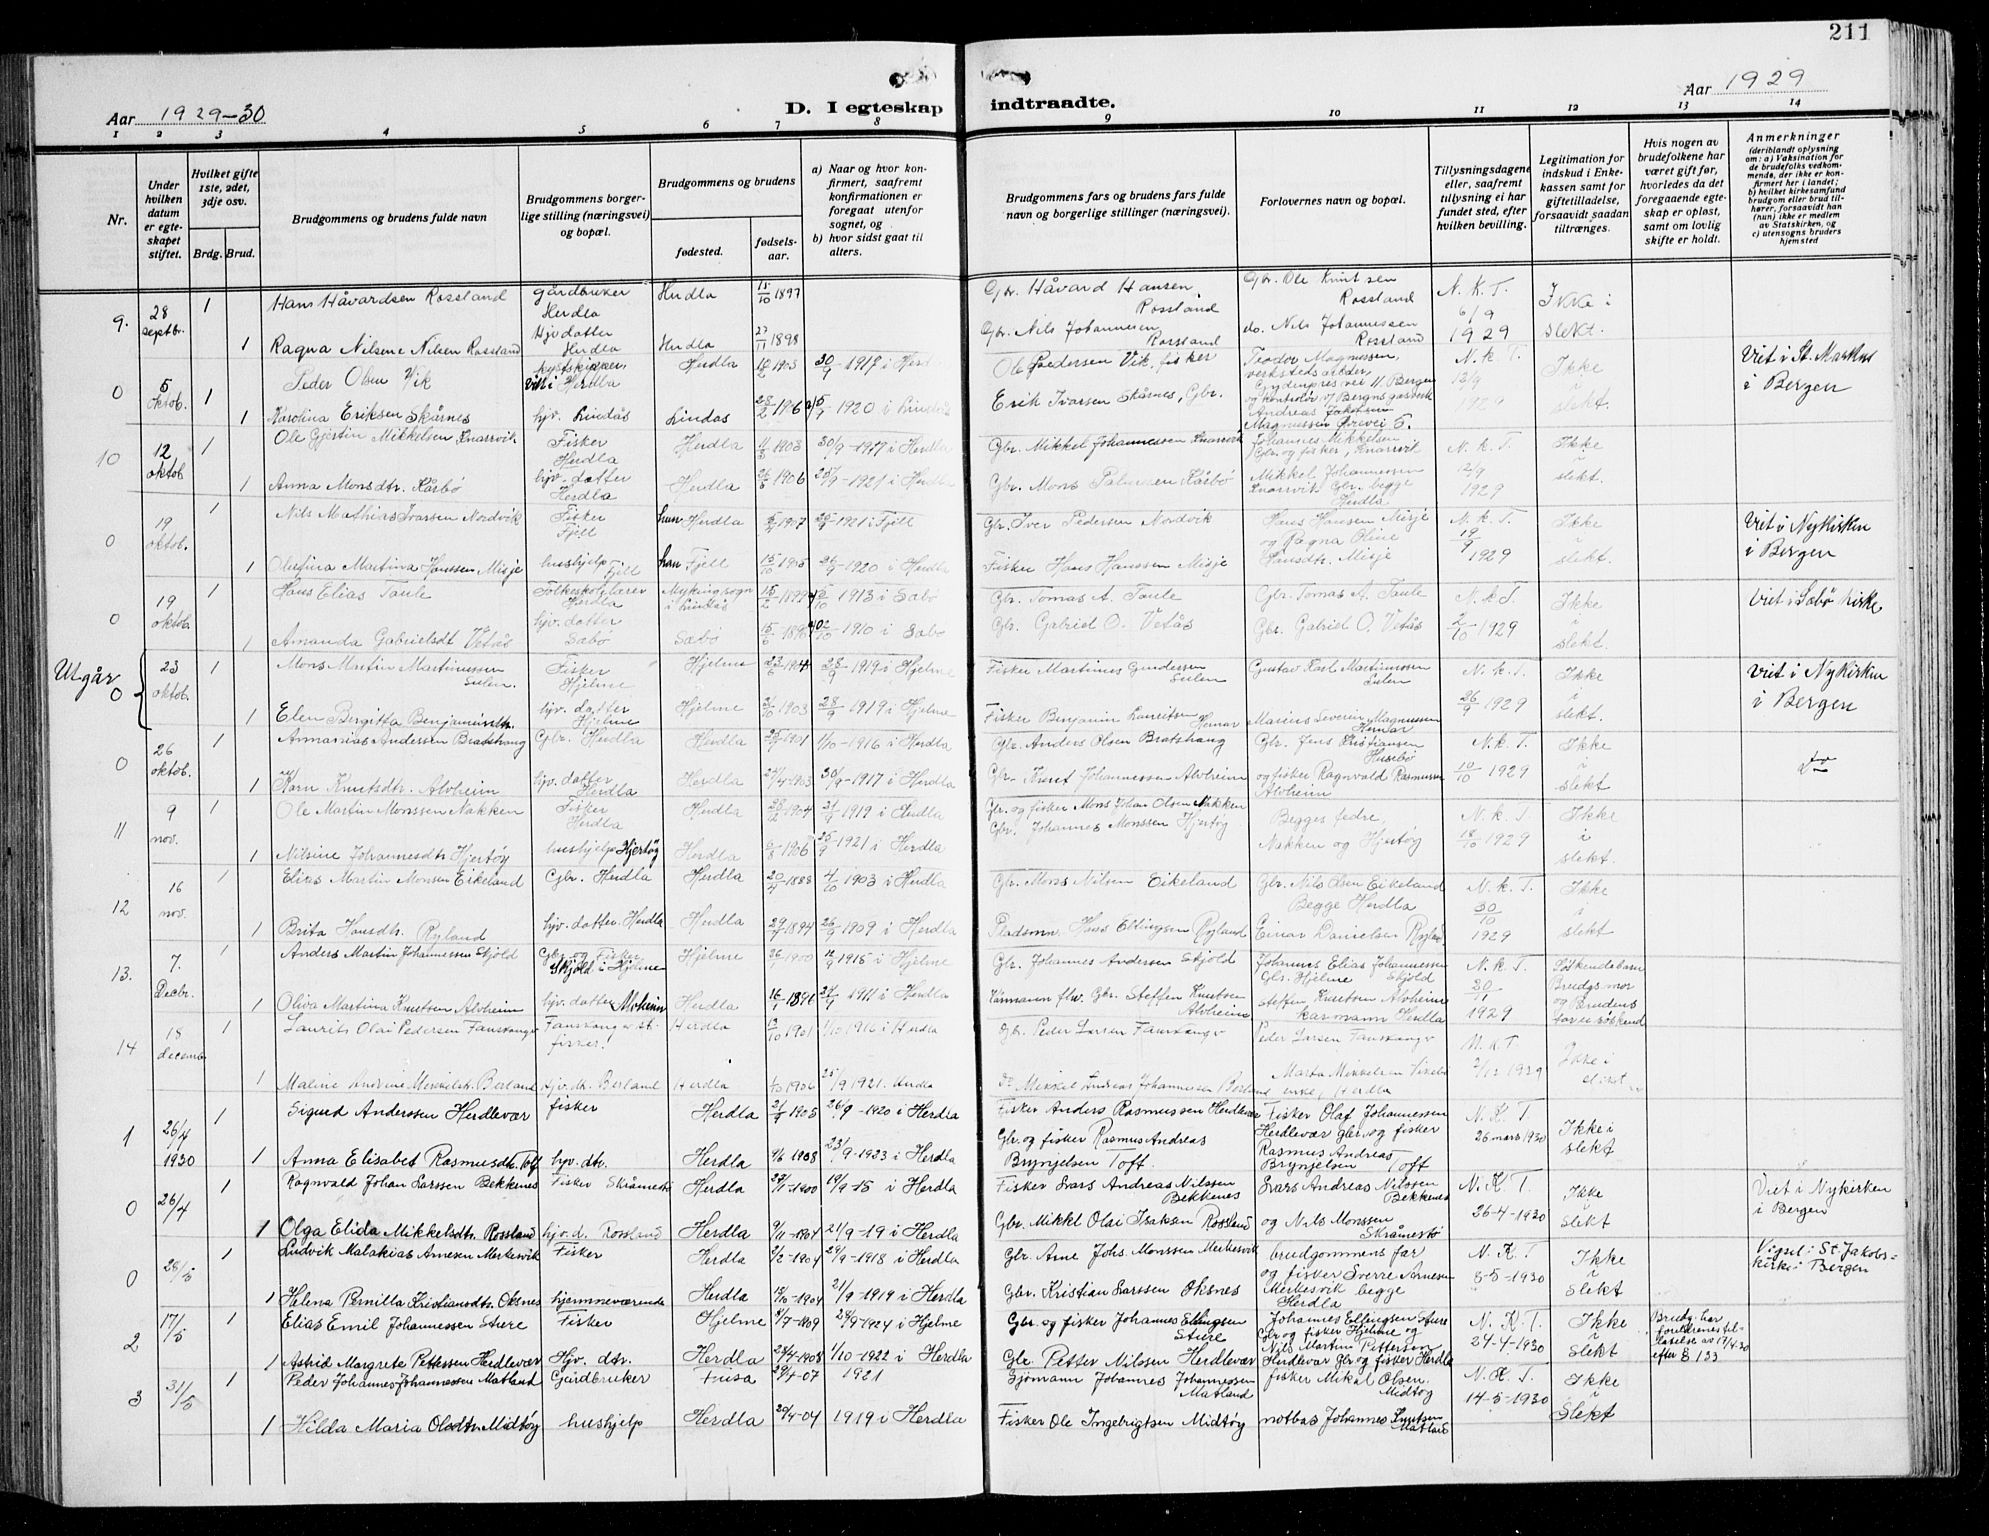 211
Aar 1929-30
D. I egteskap indtraadte.
Aar 1929
1 2 3 4 5 6 7 8 9 10 11 12 13 14
Nr.
Under hvilken datum er egteskapet stiftet.
Hvilket gifte 1ste, 2det, 3dje osv.
Brdg. Brud.
Brudgommens og brudens fulde navn
Brudgommens borgerlige stilling (næringsvei) og bopæl.
Brudgommens og brudens
fødested.
fødselsaar.
a) Naar og hvor konfirmert, saafremt konfirmationen er foregaat utenfor sognet, og
b) hvor sidst gaat til alters.
Brudgommens fars og brudens fars fulde navn og borgerlige stillinger (næringsvei).
Forlovernes navn og bopæl.
Tillysningsdagene eller, saafremt tillysning ei har fundet sted, efter hvilken bevilling.
Legitimation for indskud i Enkekassen samt for giftetilladelse, forsaavidt saadan tiltrænges.
Hvis nogen av brudefolkene har været gift før, hvorledes da det foregaaende egteskap er opløst, samt om lovlig skifte er holdt.
Anmerkninger
(deriblandt oplysning om: a) Vaksination for de brudefolks vedkommende, der ikke er konfirmert her i landet; b) hvilket kirkesamfund brudgom eller brud tilhører, forsaavidt han (hun) ikke er medlem av Statskirken, og c) utensogns bruders hjemsted
9. 28 septbr. 1 Hans Håvardsen Rossland gårdbruker Herdla Herdla 1897 Gbr. Håvard Hansen Rossland Gbr. Ole Knutsen Rossland N. K. T. 6/9 1929 Ikke i slekt.
1 Ragna Nilsine Nilsen Rossland Hjv. datter Herdla Herdla 1898 Gbr. Nils Johannesen Rossland do. Nils Johannessen Rossland
0 5 oktob. 1 Peder Olsen Vik Herdla 1903 30/9-1917 i Herdla Ole Pedersen Vik, fisker Teodor Magnussen, N. K. T. 12/9 1929 Ikke slekt. Viet i St. Markus i Bergen
1 Karolina Eriksen Skårnes hjv. Lindås Lindås 1920 i Lindås Erik Ivarsen Skårnes, Gbr. Andreas Jakobsen Magnussen
10 12 oktob. 1 Ole Gjertin Mikkelsen Knarrvik Fisker Herdla Herdla 1903 30/9-1917 i Herdla Gbr. Mikkel Johannessen Knarrvik Johannes Mikkelsen Gbr. og fisker, Knarrvik N. K. T. 12/9 1929 Ikke i slekt.
1 Anna Monsdtr. Kårbø hjv. datter Herdla Herdla 1906 25/9-1921 i Herdla Gbr. Mons Kårbø Mikkel Johannessen Knarrvik Gbr. begge Herdla
0 19 oktob. 1 Nils Mathias Ivarsen Nordvik Fisker Fjell Herdla 1907 1921 i Fjell Gbr. Iver Pedersen Nordvik Hans Hansen Misje N. K. T. 1929 Ikke i slekt. Viet i Nykirken i Bergen
1 Martina Hanssen Misje hushjelp Fjell Fjell 1905 1920 i Herdla Fisker Hans Hanssen Misje og Ragna Oline Hansdtr. Misje
0 19 oktob. 1 Hans Elias Taule Folkeskolelærer Herdla Mykingsogn i Lindås 1899 1913 i Sæbø Gbr. Tomas A. Taule Gbr. Tomas A. Taule N. K. T. 2/10 1929 Ikke i slekt. Viet i Sæbø kirke
1 Amanda Gabrielsdt Vetås hjv. datter Sæbø Sæbø 1910 i Sæbø Gbr. Gabriel O. Vetås Gbr. Gabriel O. Vetås
Utgår 0 23 oktob. 1 Mons Martin Martinussen Sulen. Fisker Hjelme Hjelme 1904 28/9-1919 i Hjelme Fisker Martines Gundersen Sulen Gustav Karl Martinussen Sulen N. K. T. 26/9 1929 Ikke i slekt. Viet i Nykirken i Bergen
1 Elen Bergitta Benjaminsdtr. hjv. datter Hjelme Hjelme 1903 28/9-1919 i Hjelme Fisker Benjamin Lauritsen Hernar Marius Severin Magnussen Hernar
0 26 oktob. 1 Annanias Andersen Bratshaug Gbr. Herdla Herdla 1901 1/10-1916 i Herdla Gbr. Anders Olsen Bratshaug Gbr. Jens Kristiansen Husebø N. K. T. 10/10 1929 Ikke i slekt do
1 Karn Knutsdtr. Alvheim hjv. datter Herdla Herdla 1903 30/9-1917 i Herdla Gbr. Knut Johannessen Alvheim og fisker Ragnvald Rasmussen Alvheim
11 9 nov. 1 Ole Martin Monssen Nakken Fisker Herdla Herdla 1904 1919 i Herdla Gbr. og fisker Mons Johan Olsen Nakken Begges fedre, N. K. T. 18/10 1929 Ikke i slekt.
1 Nilsine Johannesdtr Hjertøy hushjelp Hjertøy Herdla 1906 1921 i Herdla Gbr. Johannes Monssen Hjertøy Nakken og Hjertøy
12 16 nov. 1 Elias Martin Monsen Eikeland Gbr. Herdla Herdla 1888 4/10 1903 i Herdla Gbr. Mons Nilsen Eikeland Gbr. Nils Olsen Eikeland Begge Herdla N. K. T. 30/10 1929 Ikke i slekt
1 Brita Hansdtr. Ryland hjv. datter. Herdla Herdla 1894 26/9-1909 i Herdla Pladsmn. Hans Ryland Einar Danielsen Ryland
13. 7. Decbr. 1 Anders Martin Johannessen Skjold Gbr. og Fisker Skjold i Hjelme Hjelme 1900 1915 i Hjelme Gbr. Johannes Andersen Skjold Johannes Elias Johannessen Gbr. Hjelme Skjold N. K. T. 1929 Søskendebarn Brudgs. mor og Brudens far er søskend
1 Oliva Martina Knutsen Alvheim hjv. datter Alvheim Herdla 1891 1911 i Herdla Steffen Knutsen Alvheim Steffen Knutsen Alvheim Herdla
14 18 decemb 1 Laurits Olai Pedersen Fauskanger Fauskanger fisker Herdla 1901 1/10 1916 i Herdla Gb. Peder Larsen Fauskanger Peder Larsen Fauskanger N. K. T. 1929 Ikke i slekt
1 Maline Andrine Mikkelsdtr. Berland Hjv. dt. Berland Herdla 1906 25/9 1921. Herdla Mikkel Andreas Johannessen Berland Marta Mikkelsen enke, Herdla
1 26/4 1930 1 Sigurd Anderssen Herdlevær fisker Herdla 1903 26/9-1920 i Herdla Fisker Anders Rasmussen Herdlevær Fisker Olaf Johannessen Herdlevær gbr. og fisker N. K. T. 26 mars 1930 Ikke i slekt
1 Anna Elisabet Rasmusdtr. Toft hjv. dtr. Herdla 1908 23/9-1923 i Herdla Gbr. og fisker Rasmus Andreas Brynjelsen Toft. Rasmus Andreas Brynjelsen Toft
0 26/4 1 Ragnvald Johan Larssen Bekkenes Fisker Skråmestø Herdla 1900 19/9-15 i Herdla Fisker Lars Andreas Nilssen Bekkenes Lars Andreas Nilssen Bekkenes N. K. T. 26-4-1930 Ikke i slekt Viet i Nykirken i Bergen
1 Olga Elida Mikkelsdtr. Rossland hjv. d. Rossland Herdla 9/11-1904 21/9-19 i Herdla Gbr. Mikkl Olai Isaksen Rossland og Nils Monssen Skråmestø
0 28/5 1 Ludvik Malakias Arnesen Merkesvik Fisker Herdla 1904 29/9-1918 i Herdla Gbr. Arne Johs. Monssen Merkesvik brudgommens far og fisker Sverre Arnesen N. K. T. 8-5-1930 Ikke i slekt Vigsel i St. Jakobskirke i Bergen
1 Helena Pernilla Kristiansdtr. Oksnes hjemmeværende Herdla 1904 21/9-1919 i Herdla Gbr. Kristian Larssen Oksnes Merkesvik begge Herdla
2 17/5 1 Elias Emil Johannessen Sture Fisker Hjelme 8/7-1909 28/9-1924 i Hjelme Gbr. og fisker Johannes Ellingsen Sture Johannes Ellingsen Sture Gbr og fisker Hjelme og N. K. T. 24-4-1930 Ikke i slekt Brudg. har foreldrenes tillatelse av 17/4-30 efter § 133
1 Astrid Margrete Pettersen Herdlevær Hjv. dtr. Herdla 1908 1/10-1922 i Herdla Gbr. Petter Nilssen Herdlevær Nils Martin Pettersen Herdlevær Gbr og fisker Herdla
3 31/5 1 Peder Johannes Johannessen Matland Gårdbruker Fusa 29/4-07 1921 Sjömann Johannes Johannessen Matland fisker Mikal Olsen Midtøy N. K. T. 14-5-1930 Ikke i slekt
1 Hilda Maria Olsdtr. Midtøy hushjelp Herdla 20/4-04 1919 i Herdla Fisker Ole Ingebrigtsen Midtøy notbas Johannes Knutsen Matland